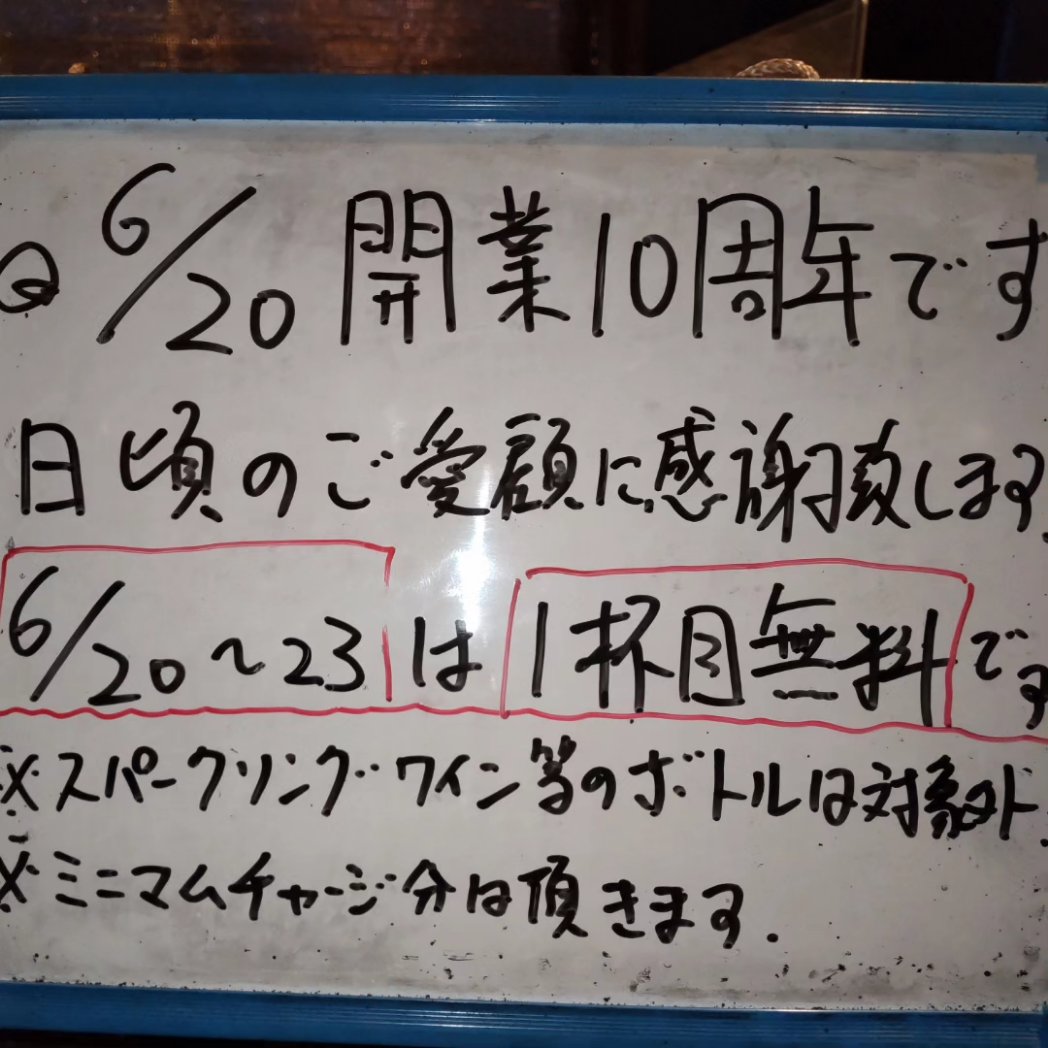 6/20 開業10周年です
日頃のご愛顧に感謝致します.
6/20~23は1杯目無料です
※スパークリング・ワイン等のボトルは対象外.
※ミニマムチャージ分は頂きます.